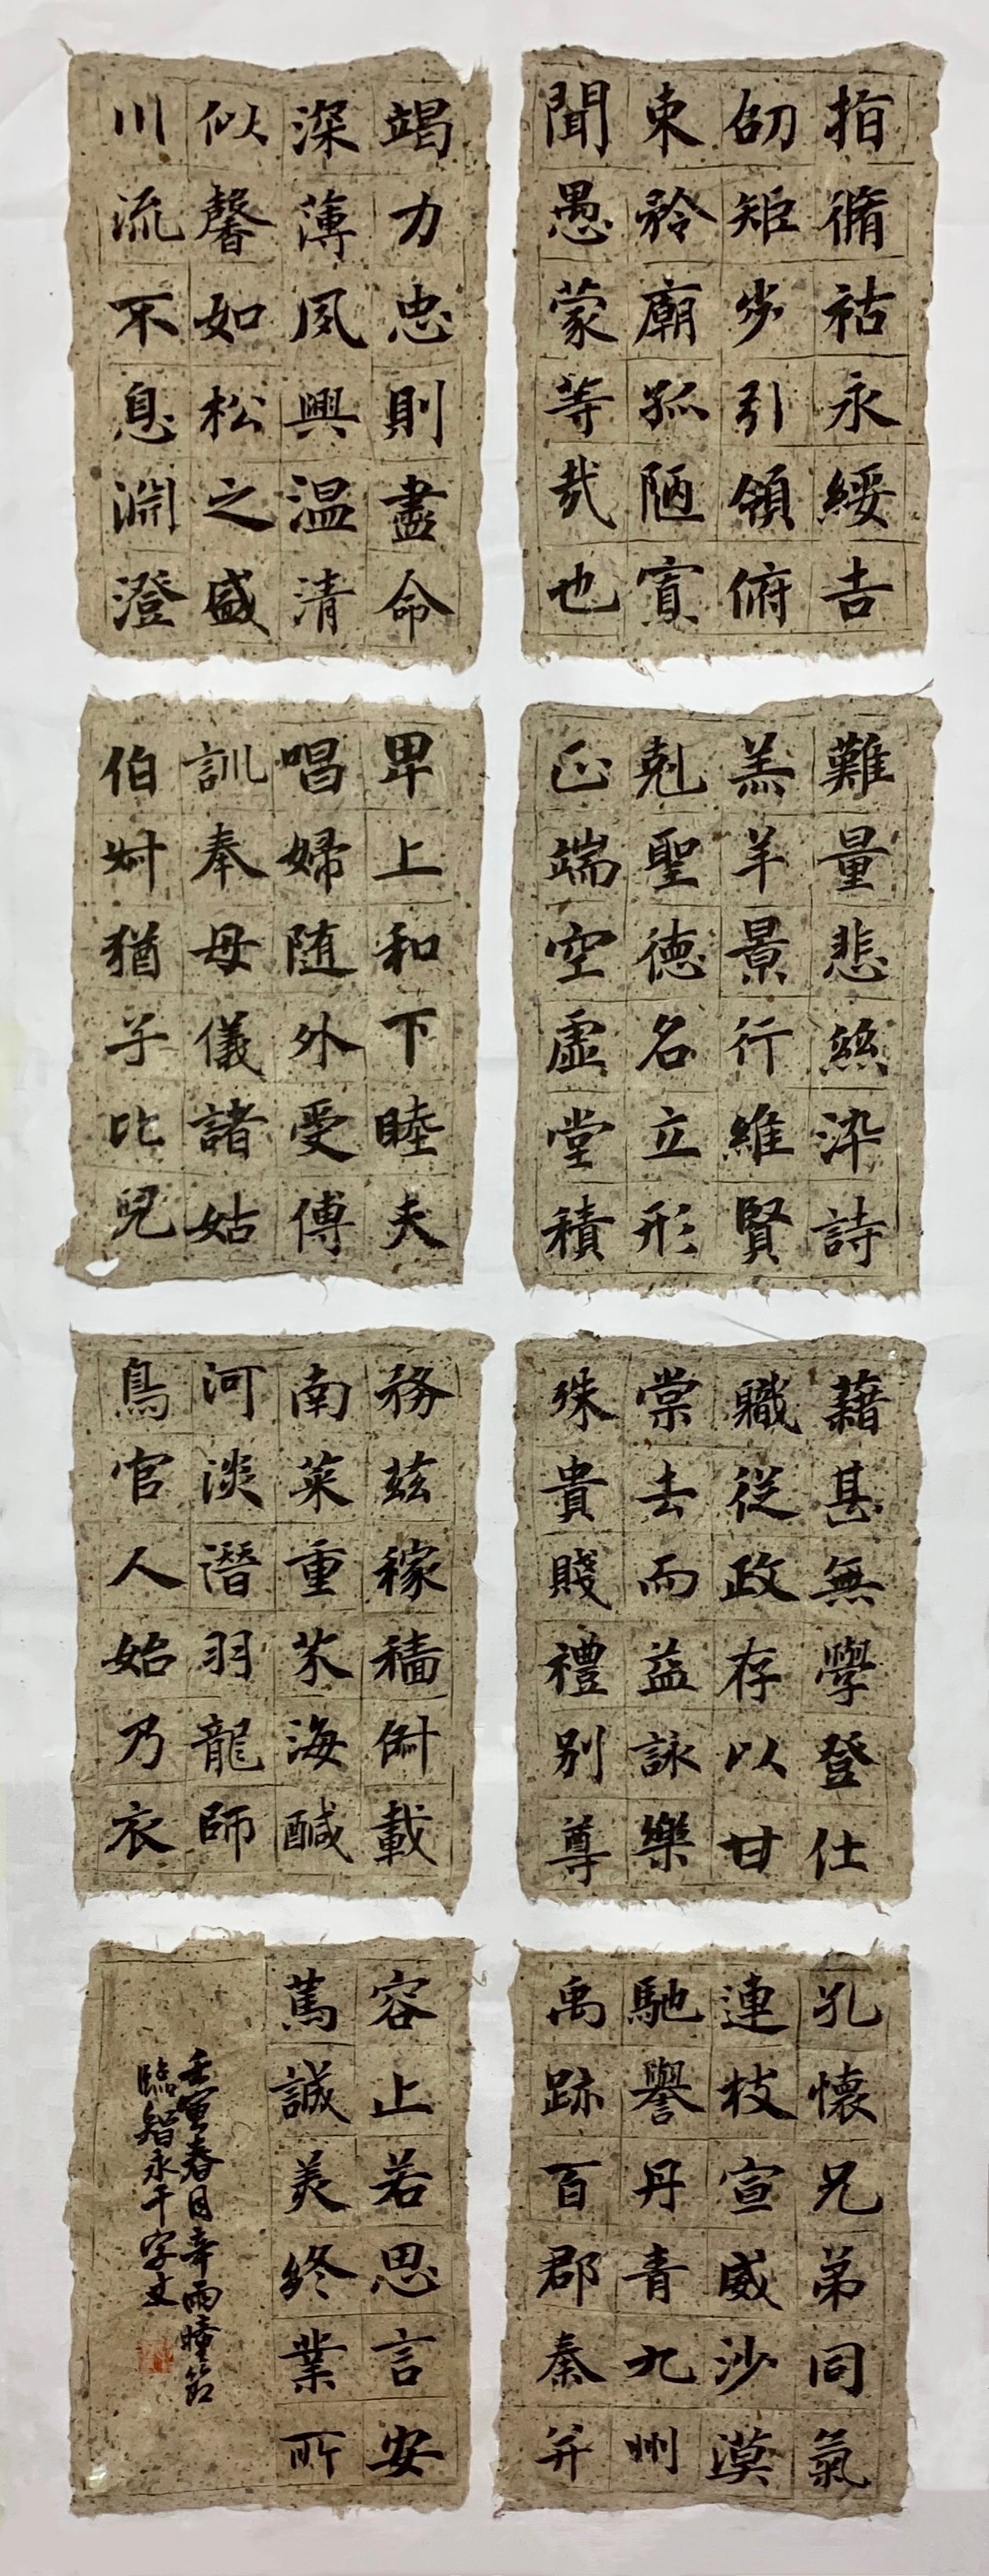 指脩祜永綏吉
劭矩步引領俯
束矜廟孤陋寡
聞愚蒙等哉也
難量悲絲染詩
羔羊景行維賢
剋聖德名立形
正端空虛堂積
藉甚無學登仕
職從政存以甘
棠去而益詠樂
殊貴賤禮別尊
孔懷兄弟同氣
連枝宣威沙漠
馳譽丹青九州
禹跡百郡秦并
竭力忠則盡命
深薄夙興温清
似馨如松之盛
川流不息淵澄
卑上和下睦夫
唱婦随外受傅
訓奉母儀諸姑
伯叔猶子比兒
務茲稼穡俶載
南菜重芥海鹹
河淡潛羽龍師
鳥官人始乃衣
容止若思言安
篤誠美終業所
壬寅春月辛雨曈
臨智永千字文